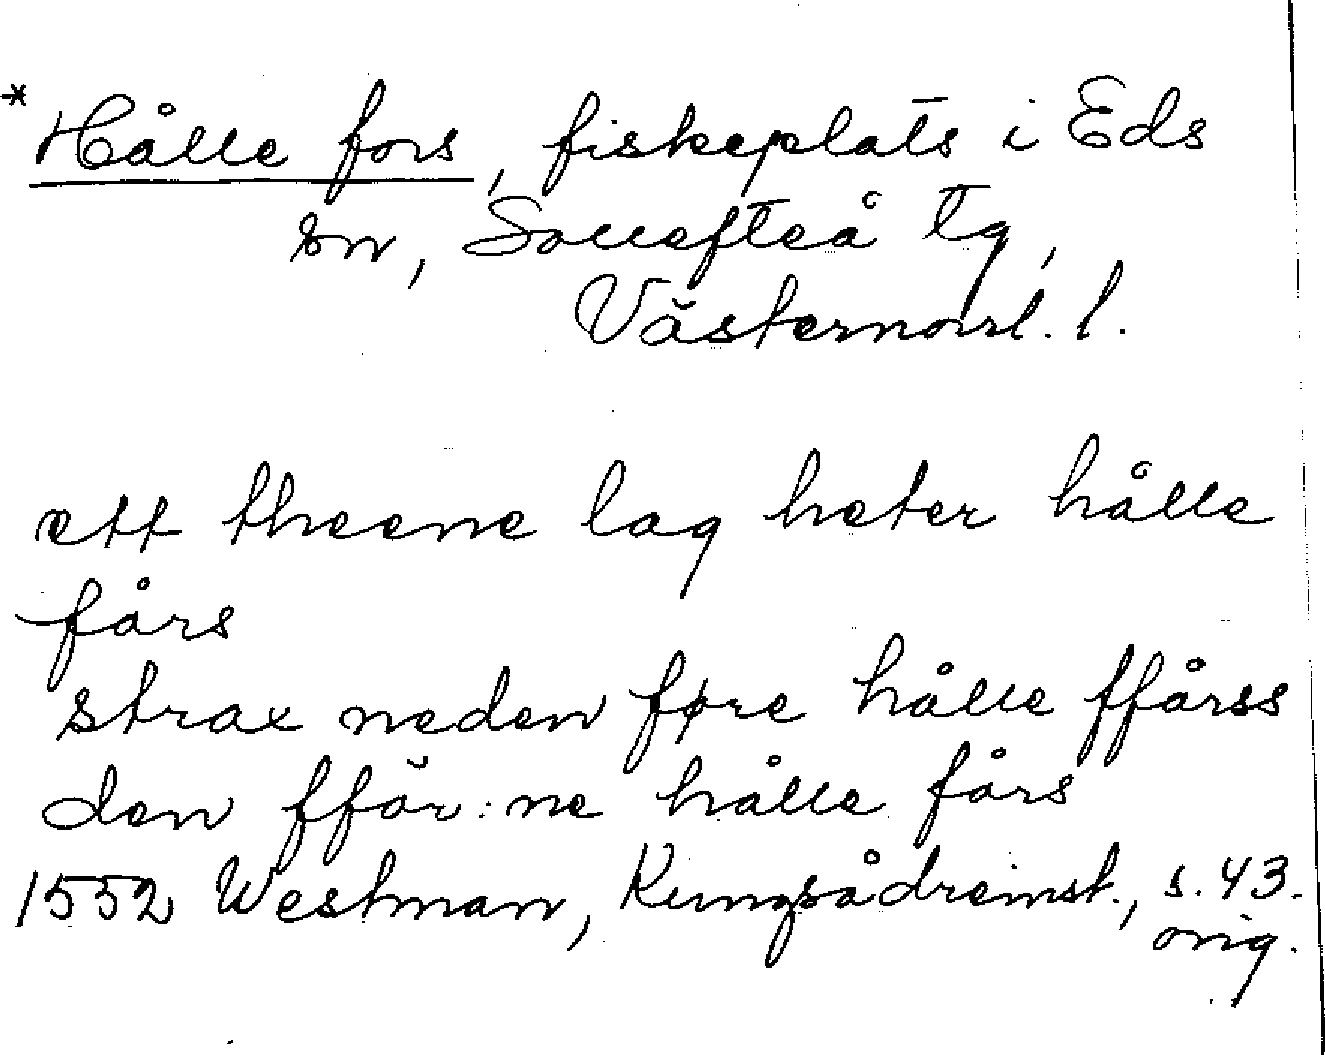 * Hålle fors, fiskeplats i Eds
sn, Sollefteå tg,
Västernorrl. l.
ett theene lag heter hålle
fårs
strax neden føre hålle ffårss
den fför:ne hålle fårs
1552 Westman, Kungsådreinst., s. 43.
orig.